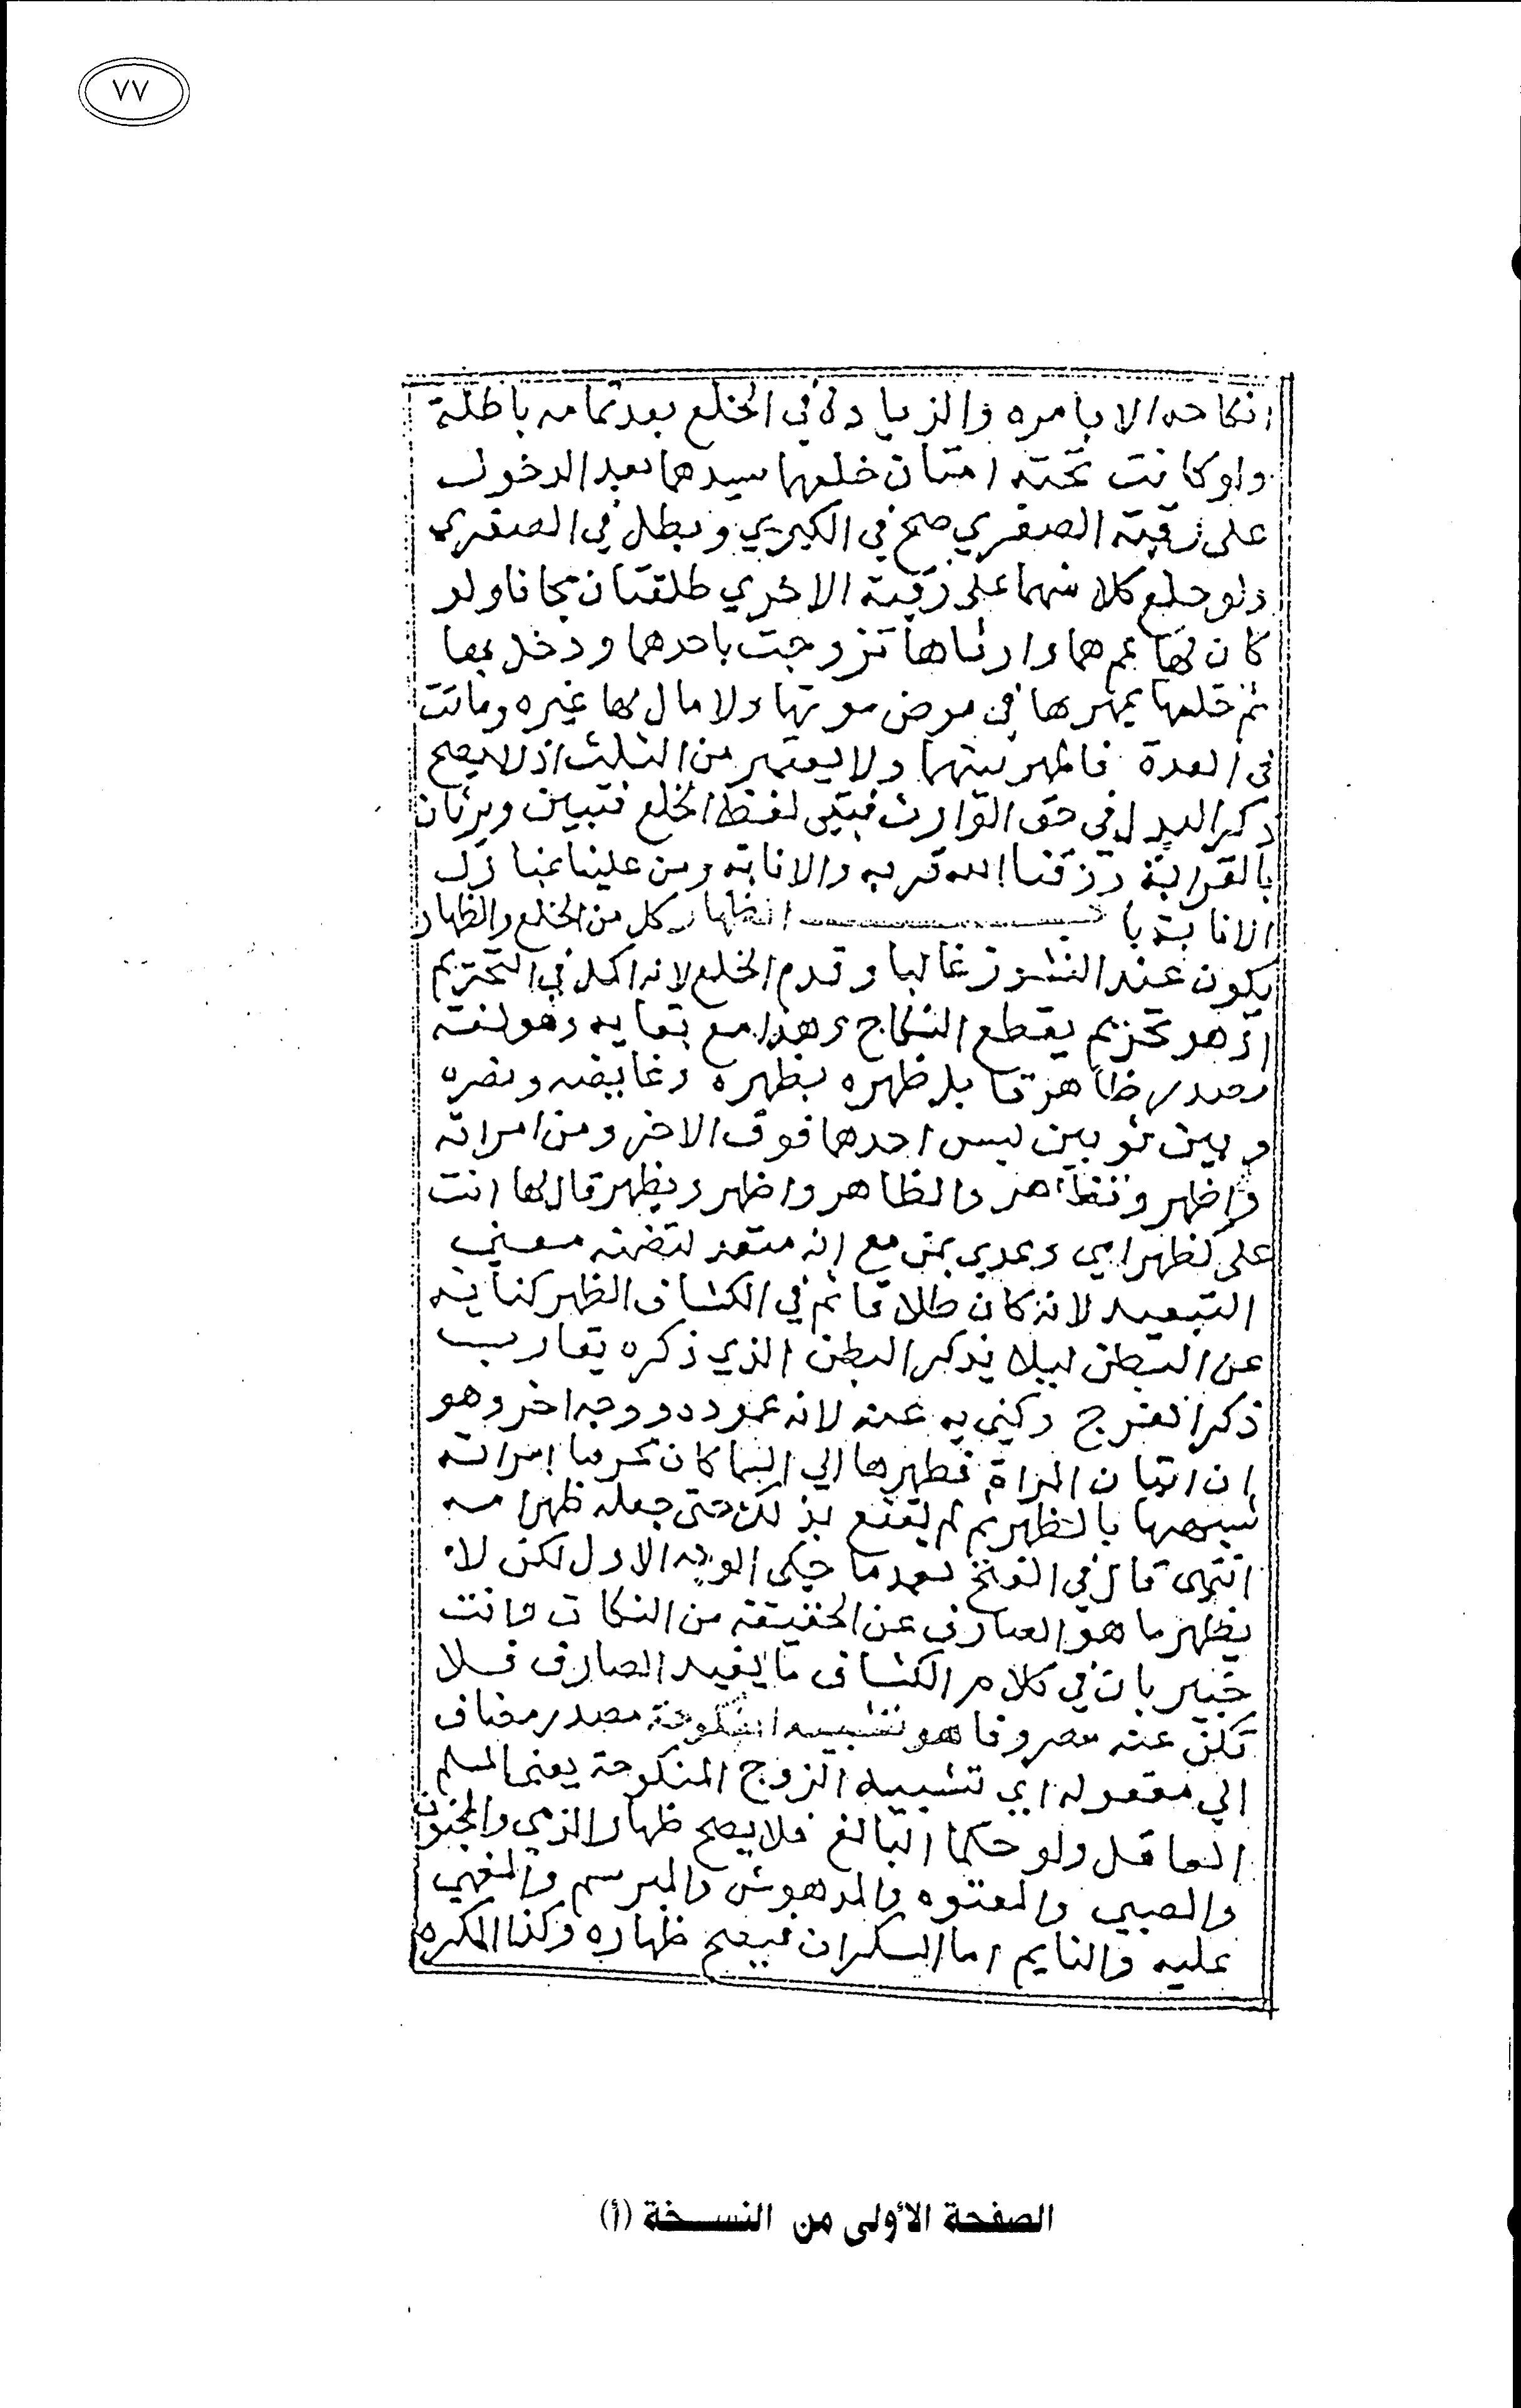 ٧٧
انكاحه الا بامره والزيادة في الخلع بعد تمامه باطلة
ولو كانت تحته امتان خلعهما سيدهما بعد الدخول
على رقبة الصغري صح في الكبري وبطل في الصغري
ولو خلع كلا منهما على رقبة الاخري طلقتان مجانا ولو
كان لها عم هما وارثاها تزوجت باحدهما ودخل بها
ثم خلعها بمهرها في مرض موتها ولا مال لها غيره وماتت
في العدة فالمهر بينهما ولا يعتبر من الثلث اذ لا يصح
ذكر البدل في حق الوارث فبقي لفظ الخلع فتبين ويرثان
بالقرابة رزقنا الله قربه والانابه ومن علينا بمنازل
الانابة باب الظهار كل من الخلع والظهار
يكون عند النشوز غالبا وقدم الخلع لانه اكمل في التحريم
اذ هو تحريم يقطع النكاح وهذا مع بقايه وهو لغة
مصدر ظاهر قابل ظهره بظهره وغايضه ونصره
وبين ثوبين لبس احدها فوق الاخر ومن امراته
واظهر وتظاهر والظاهر واظهر ويظهر قال لها انت
على كظهر امي وعدي بمن مع انه متعد لتضمنه معنى
التبعيد لانه كان طلاقا ثم في الكشاف الظهر كناية
عن البطن ليلا يذكر البطن الذي ذكره يقارب
ذكر الفرج وكني به عنه لانه عموده ووجه اخر وهو
ان اتيان المراة فظهرها الي السما كان محرما امراته
شبهها بالظهر ثم لم يقنع بذلك حتى جعله ظهر امه
انتهى قال في الفتح بعدما حكى الوجه الاول لكن لا
يظهر ما هو الصارف عن الحقيقة من النكات وانت
خبير بان في كلام الكشاف ما يفيد الصارف فلا
تكن عنه مصروفا هو تشبيه المنكوحة مصدر مضاف
الي مفعوله اي تشبيه الزوج المنكوحة يعنى المسلم
العاقل ولو حكما البالغ فلا يصح ظهار الذمي والمجنون
والصبي والمعتوه والمدهوش والمبرسم والمغمي
عليه والنايم اما السكران فيصح ظهاره وكذا المكره
الصفحة الأولى من النسخة (أ)